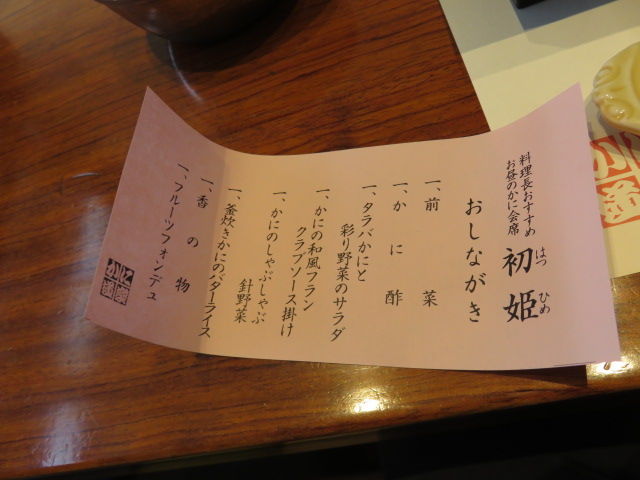 料理長おすすめ
お昼のかに会席
初姫
はつ ひめ
おしながき
一、前菜
一、かに酢
一、タラバかにと
彩り野菜のサラダ
一、かにの和風フラン
クラブソース掛け
一、かにのしゃぶしゃぶ
針野菜
一、釜炊きかにのバターライス
一、香の物
一、フルーツフォンデュ
かに道楽